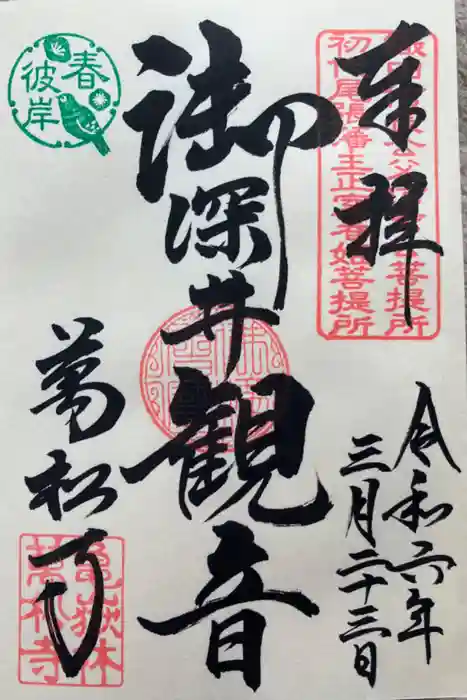 奉拝
令和六年
三月二十三日
御深井観音
萬松寺
春
彼岸
初代尾張藩主正室春姫菩提所
亀嶽林
萬松寺